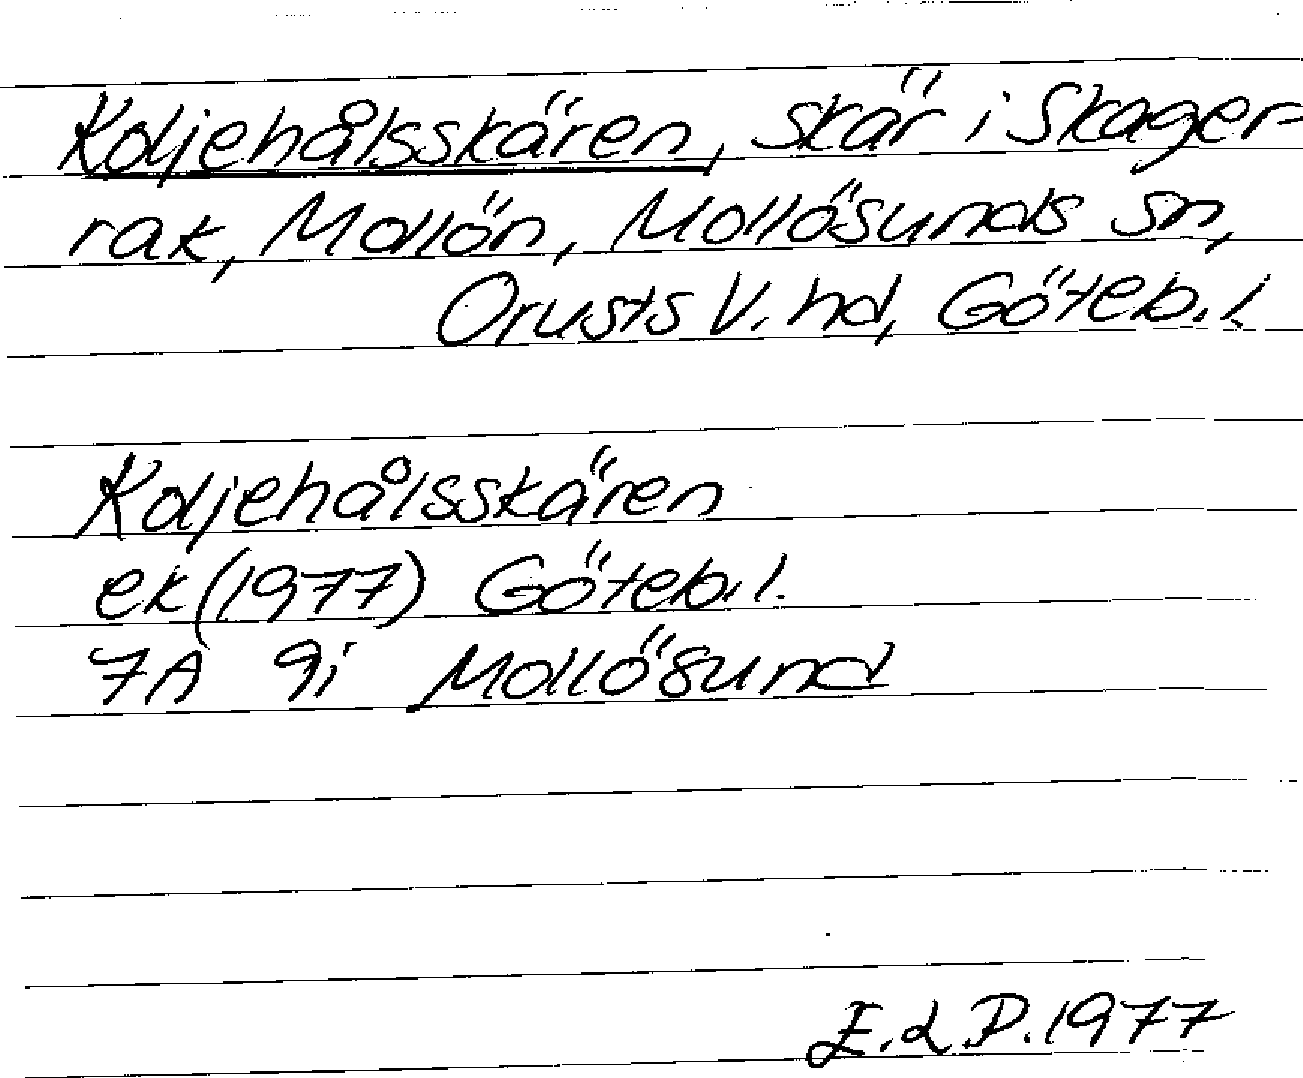 Koljehålsskären, skär i Skager-
rak, Mollön, Mollösunds sn,
Orusts V. hd, Göteb. l.
Koljehålsskären
ek (1977) Göteb. l.
7A 9i Mollösund
E.L.P. 1977